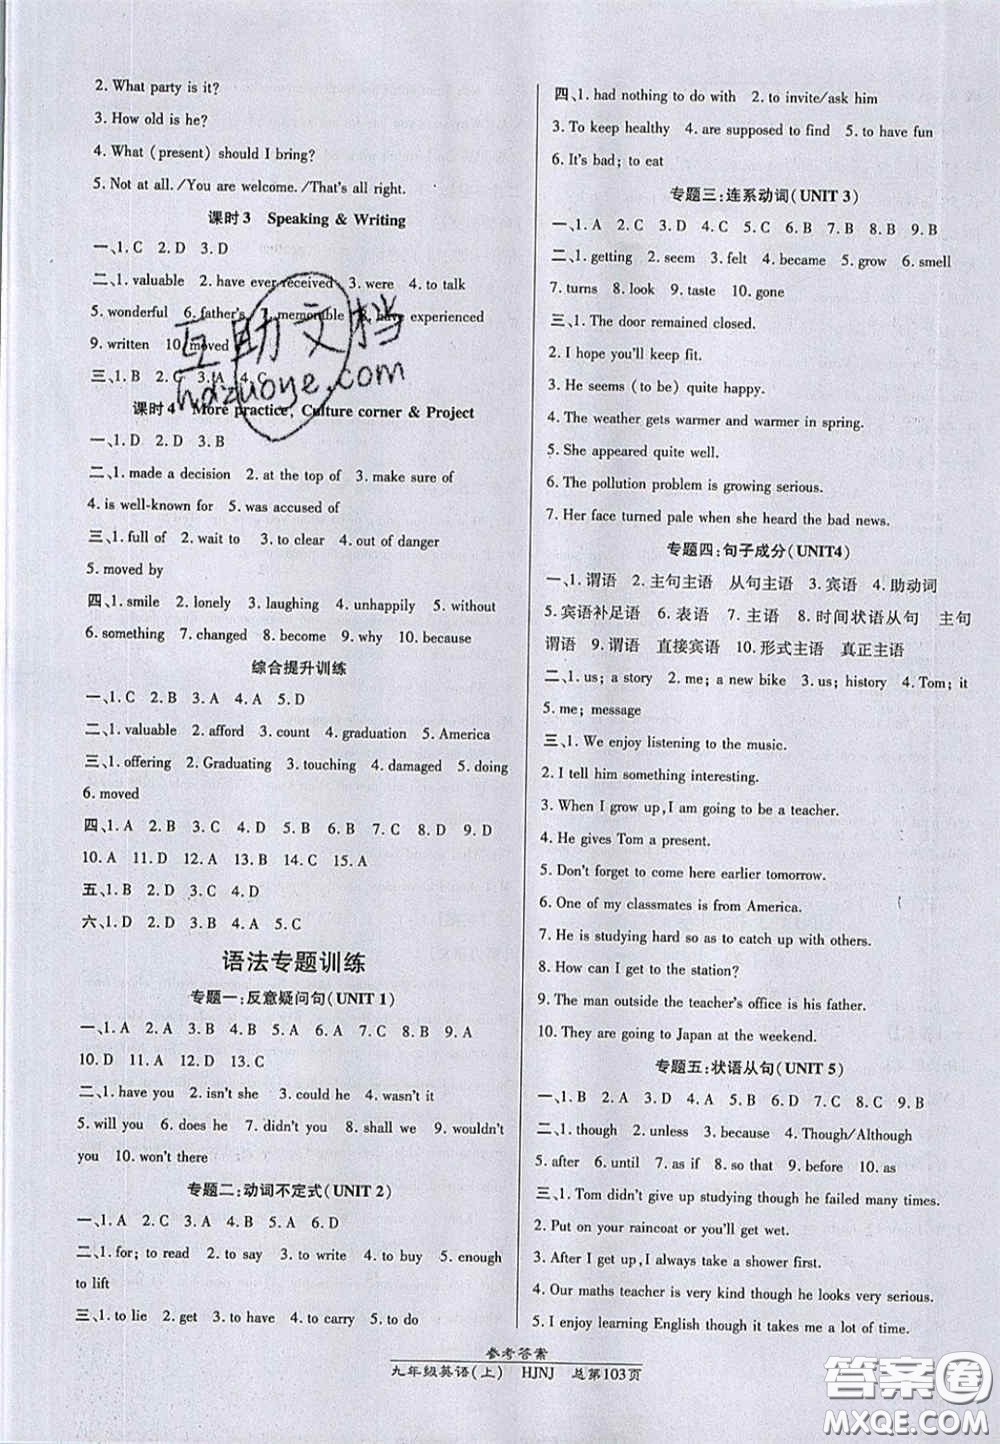 2. What party is it?
3. How old is he?
4. What (present) should I bring?
5. Not at all. /You are welcome. /That's all right.
课时3 Speaking & Writing
一、1. C 2. D 3. D
二、1. valuable 2. have ever received 3. were 4. to talk
5. wonderful 6. father's 7. memorable 8. have experienced
9. written 10. moved
三、1. B 2. C 3. A 4. C
课时4 More practice, Culture corner & Project
一、1. D 2. D 3. B
二、1. made a decision 2. at the top of 3. make sure of
4. is well-known for 5. was accused of
三、1. full of 2. wait to 3. to clear 4. out of danger
5. moved by
四、1. smile 2. lonely 3. laughing 4. unhappily 5. without
6. something 7. changed 8. become 9. why 10. because
综合提升训练
一、1. C 2. B 3. A 4. A 5. D
二、1. valuable 2. afford 3. count 4. graduation 5. America
三、1. offering 2. Graduating 3. touching 4. damaged 5. doing
6. moved
四、1. A 2. B 3. C 4. D 5. B 6. B 7. C 8. D 9. D
10. A 11. D 12. A 13. B 14. C 15. A
五、1. D 2. B 3. C 4. D
六、1. D 2. D 3. B 4. A 5. C
语法专题训练
专题一:反意疑问句(UNIT 1)
一、1. A 2. A 3. B 4. B 5. D 6. A 7. C 8. B 9. A
10. D 11. A 12. D 13. C
二、1. have you 2. isn't she 3. can he 4. wasn't it
5. will you 6. does he 7. didn't you 8. shall we 9. wouldn't
you 10. won't there
专题二:动词不定式(UNIT 2)
一、1. A 2. C 3. A 4. D 5. A 6. D
二、1. for; to read 2. to say 3. to write 4. to buy 5. enough
to lift
三、1. to lie 2. get 3. to have 4. to carry 5. to do
四、1. had nothing to do with 2. to invite/ask him
3. To keep healthy 4. are supposed to find 5. to have fun
6. It's bad; to eat
专题三:连系动词(UNIT 3)
一、1. A 2. C 3. A 4. D 5. C 6. B 7. B 8. B 9. B
二、1. getting 2. seem 3. felt 4. became 5. grow 6. smell
7. turns 8. look 9. taste 10. gone
三、1. The door remained closed.
2. I hope you'll keep fit.
3. He seems (to be) quite happy.
4. The weather gets warmer and warmer in spring.
5. She appeared quite well.
6. The pollution problem is growing serious.
7. Her face turned pale when she heard the bad news.
专题四:句子成分(UNIT4)
一、1. 谓语 2. 主句主语 从句主语 3. 宾语 4. 助动词
5. 宾语补足语 6. 表语 7. 主语 8. 时间状语从句 主句
谓语 9. 谓语 直接宾语 10. 形式主语 真正主语
二、1. us; a story 2. me; a new bike 3. us; history 4. Tom; it
5. me; message
三、1. We enjoy listening to the music.
2. I tell him something interesting.
3. When I grow up, I am going to be a teacher.
4. He gives Tom a present.
5. Don't forget to come here earlier tomorrow.
6. One of my classmates is from America.
7. He is studying hard so as to catch up with others.
8. How can I get to the station?
9. The man outside the teacher's office is his father.
10. They are going to Japan at the weekend.
专题五:状语从句(UNIT 5)
一、1. B 2. A 3. D 4. B 5. D 6. A 7. C 8. C 9. B
二、1. though 2. unless 3. because 4. Though/Although
5. after 6. until 7. as if 8. so that 9. before 10. as
三、1. Tom didn't give up studying though he failed many times.
2. Put on your raincoat or you'll get wet.
3. After I get up, I always take a shower first.
4. Our maths teacher is very kind though he looks very serious.
5. I enjoy learning English though it takes me a lot of time.
参考答案
九年级英语(上) HJNJ 总第103页
互助文档
hdzuoye.com
答案圈
MXQE.COM